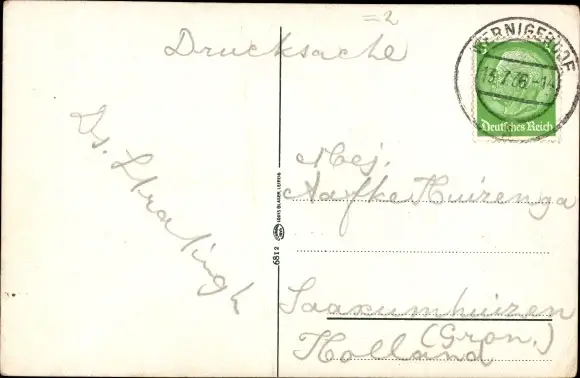 =2
Drucksache
WERNIGERODE
13.7.36.-14
Deutsches Reich
Ds. Stratingh
Mej.
Aafke Huizenga
LOUIS GLASER, LEIPZIG
6812
Saaxumhuizen
(Gron.)
Holland